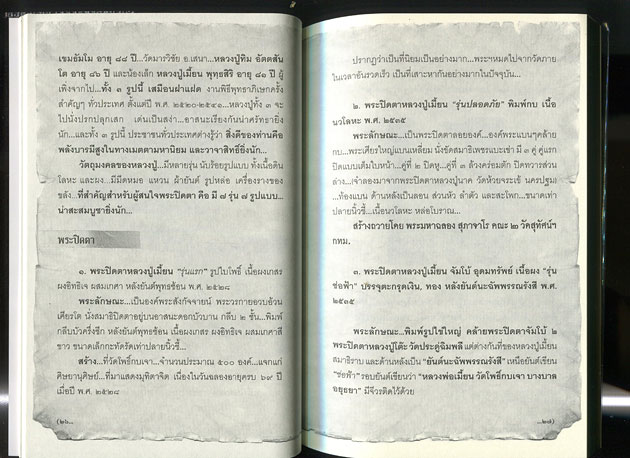 เขมธัมโม อายุ ๘๘ ปี...วัดมารวิชัย อ.เสนา...หลวงปู่ทิม อัตตสัน
โต อายุ ๘๖ ปี และน้องเล็ก หลวงปู่เมี้ยน พุทธสิริ อายุ ๘๑ ปี ผู้
เพิ่งจากไป...ทั้ง ๓ รูปนี้ เสมือนฝาแฝด งานพิธีพุทธาภิเษกครั้ง
สำคัญๆ ทั่วประเทศ ตั้งแต่ปี พ.ศ. ๒๕๒๐-๒๕๔๑...หลวงปู่ทั้ง ๓ จะ
ไปนั่งปรกปลุกเสก เด่นเป็นสง่า...อาสนะเรียงกันน่าศรัทธายิ่ง
นัก...และทั้ง ๓ รูปนี้ ประชาชนทั่วประเทศต่างรู้ว่า สิ่งดีของท่านคือ
พลังบารมีสูงในทางเมตตามหานิยม และวาจาสิทธิ์ยิ่งนัก...
วัตถุมงคลของหลวงปู่...มีหลายรุ่น นับร้อยรูปแบบ ทั้งเนื้อดิน
โลหะ และผง...มีมีดหมอ แหวน ผ้ายันต์ รูปหล่อ เครื่องรางของ
ขลัง...ที่สำคัญสำหรับผู้สนใจพระปิดตา คือ มี ๗ รุ่น ๗ รูปแบบ...
น่าสะสมบูชายิ่งนัก...
พระปิดตา
๑. พระปิดตาหลวงปู่เมี้ยน "รุ่นแรก" รูปใบโพธิ์ เนื้อผงเกสร
ผงอิทธิเจ ผสมเกศา หลังยันต์พุทธซ้อน พ.ศ. ๒๕๒๘
พระลักษณะ...เป็นองค์พระสังกัจจายน์ พระวรกายอวบอ้วน
เศียรโต นั่งสมาธิปิดตาอยู่บนอาสนะดอกบัวบาน กลีบ ๒ ชั้น...พิมพ์
กลีบบัวครึ่งซีก หลังยันต์พุทธซ้อน เนื้อผงเกสร ผงอิทธิเจ ผสมเกศาสี
ขาว ขนาดเล็กกะทัดรัดเท่าปลายนิ้วชี้...
สร้าง...ที่วัดโพธิ์กบเจา...จำนวนประมาณ ๕๐๐ องค์...แจกแก่
ศิษยานุศิษย์...ที่มาแสดงมุทิตาจิต เนื่องในวันฉลองอายุครบ ๖๙ ปี
เมื่อปี พ.ศ. ๒๕๒๘
(๒๖...
ปรากฏว่าเป็นที่นิยมเป็นอย่างมาก...พระฯหมดไปจากวัดภาย
ในเวลาอันรวดเร็ว เป็นที่เสาะหากันอย่างมากในปัจจุบัน...
๒. พระปิดตาหลวงปู่เมี้ยน "รุ่นปลอดภัย" พิมพ์กบ เนื้อ
นวโลหะ พ.ศ. ๒๕๓๕
พระลักษณะ...เป็นพระปิดตาลอยองค์...องค์พระแบนๆคล้าย
กบ...พระเศียรใหญ่แบนเหลี่ยม นั่งขัดสมาธิเพชรแบะเข่า มี ๓ คู่ คู่แรก
ปิดแบบเต็มใบหน้า...คู่ที่ ๒ ปิดหู...คู่ที่ ๓ ล้วงคร่อมตัก ปิดทวารส่วน
ล่าง...(จำลองมาจากพระปิดตาหลวงปู่นาค วัดห้วยจระเข้ นครปฐม)
...ท้องแบน ด้านหลังเป็นลอน ส่วนหัว ลำตัว และสะโพก...ขนาดเท่า
ปลายนิ้วชี้...เนื้อนวโลหะ หล่อโบราณ...
สร้างถวายโดย พระมหาฉลอง สุภาจาโร คณะ ๒ วัดสุทัศน์ฯ
กทม.
๓. พระปิดตาหลวงปู่เมี้ยน จัมโบ้ อุดมทรัพย์ เนื้อผง "รุ่น
ช่อฟ้า" บรรจุตะกรุดเงิน, ทอง หลังยันต์นะฉัพพรรณรังสี พ.ศ.
๒๕๓๕
พระลักษณะ...พิมพ์รูปไข่ใหญ่ คล้ายพระปิดตาจัมโบ้ ๒
พระปิดตาหลวงปู่โต๊ะ วัดประดู่ฉิมพลี แต่ต่างกันที่ของหลวงปู่เมี้ยน
สมาธิราบ และด้านหลังเป็น "ยันต์นะฉัพพรรณรังสี" เหนือยันต์เขียน
"ช่อฟ้า" รอบยันต์เขียนว่า "หลวงพ่อเมี้ยน วัดโพธิ์กบเจา บางบาล
อยุธยา" มีจีวรติดไว้ด้วย
...๒๗)